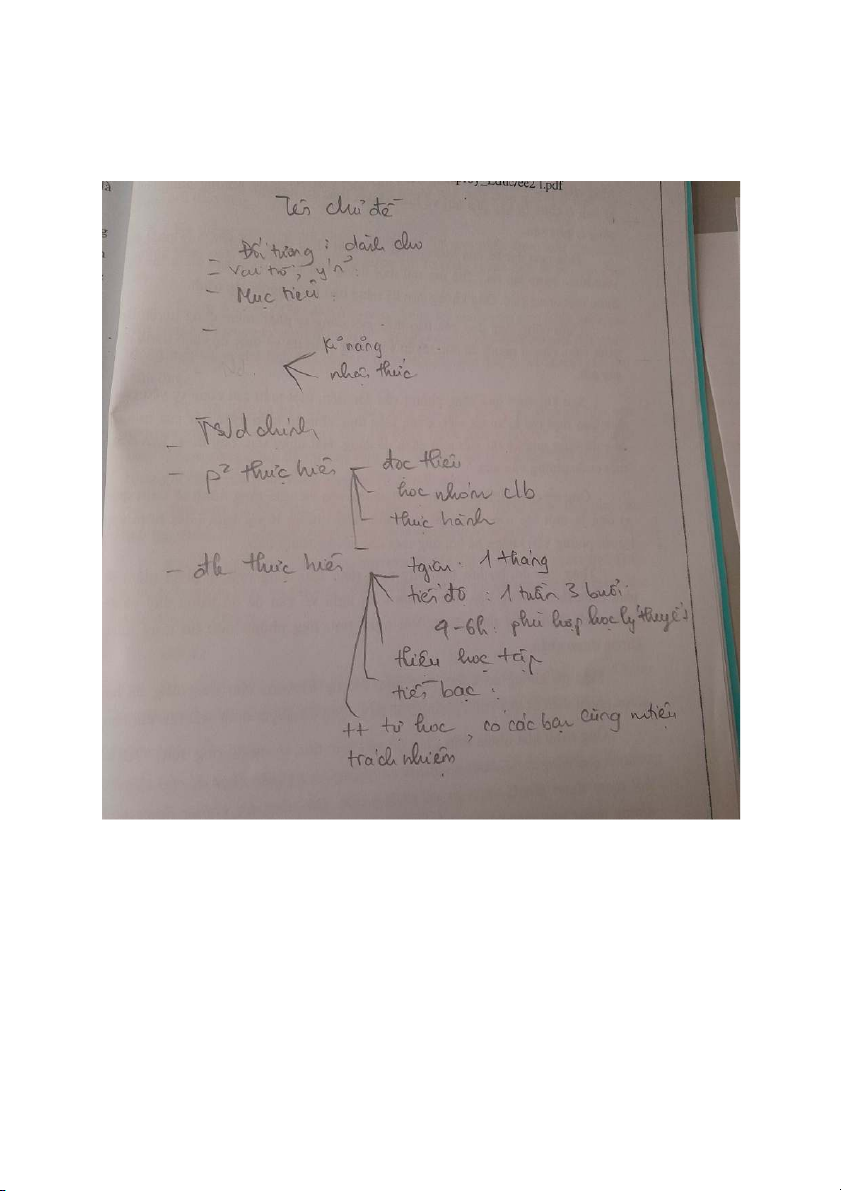 là
Edusec21.pdf
Tên chủ đề
- Đối tượng : dành cho
- Vai trò, ý n²:
- Mục tiêu :
-
Nd
Kĩ năng
nhận thức
- Nd chính
- p² thực hiện - đọc thêm
- học nhóm clb
- thực hành
- đk thực hiện
tgian : 1 tháng
tiến độ : 1 tuần 3 buổi
4-6h : phù hợp học lý thuyết
học tập
tiền bạc :
++ tự học , có các bạn cùng nhiệm
trách nhiệm